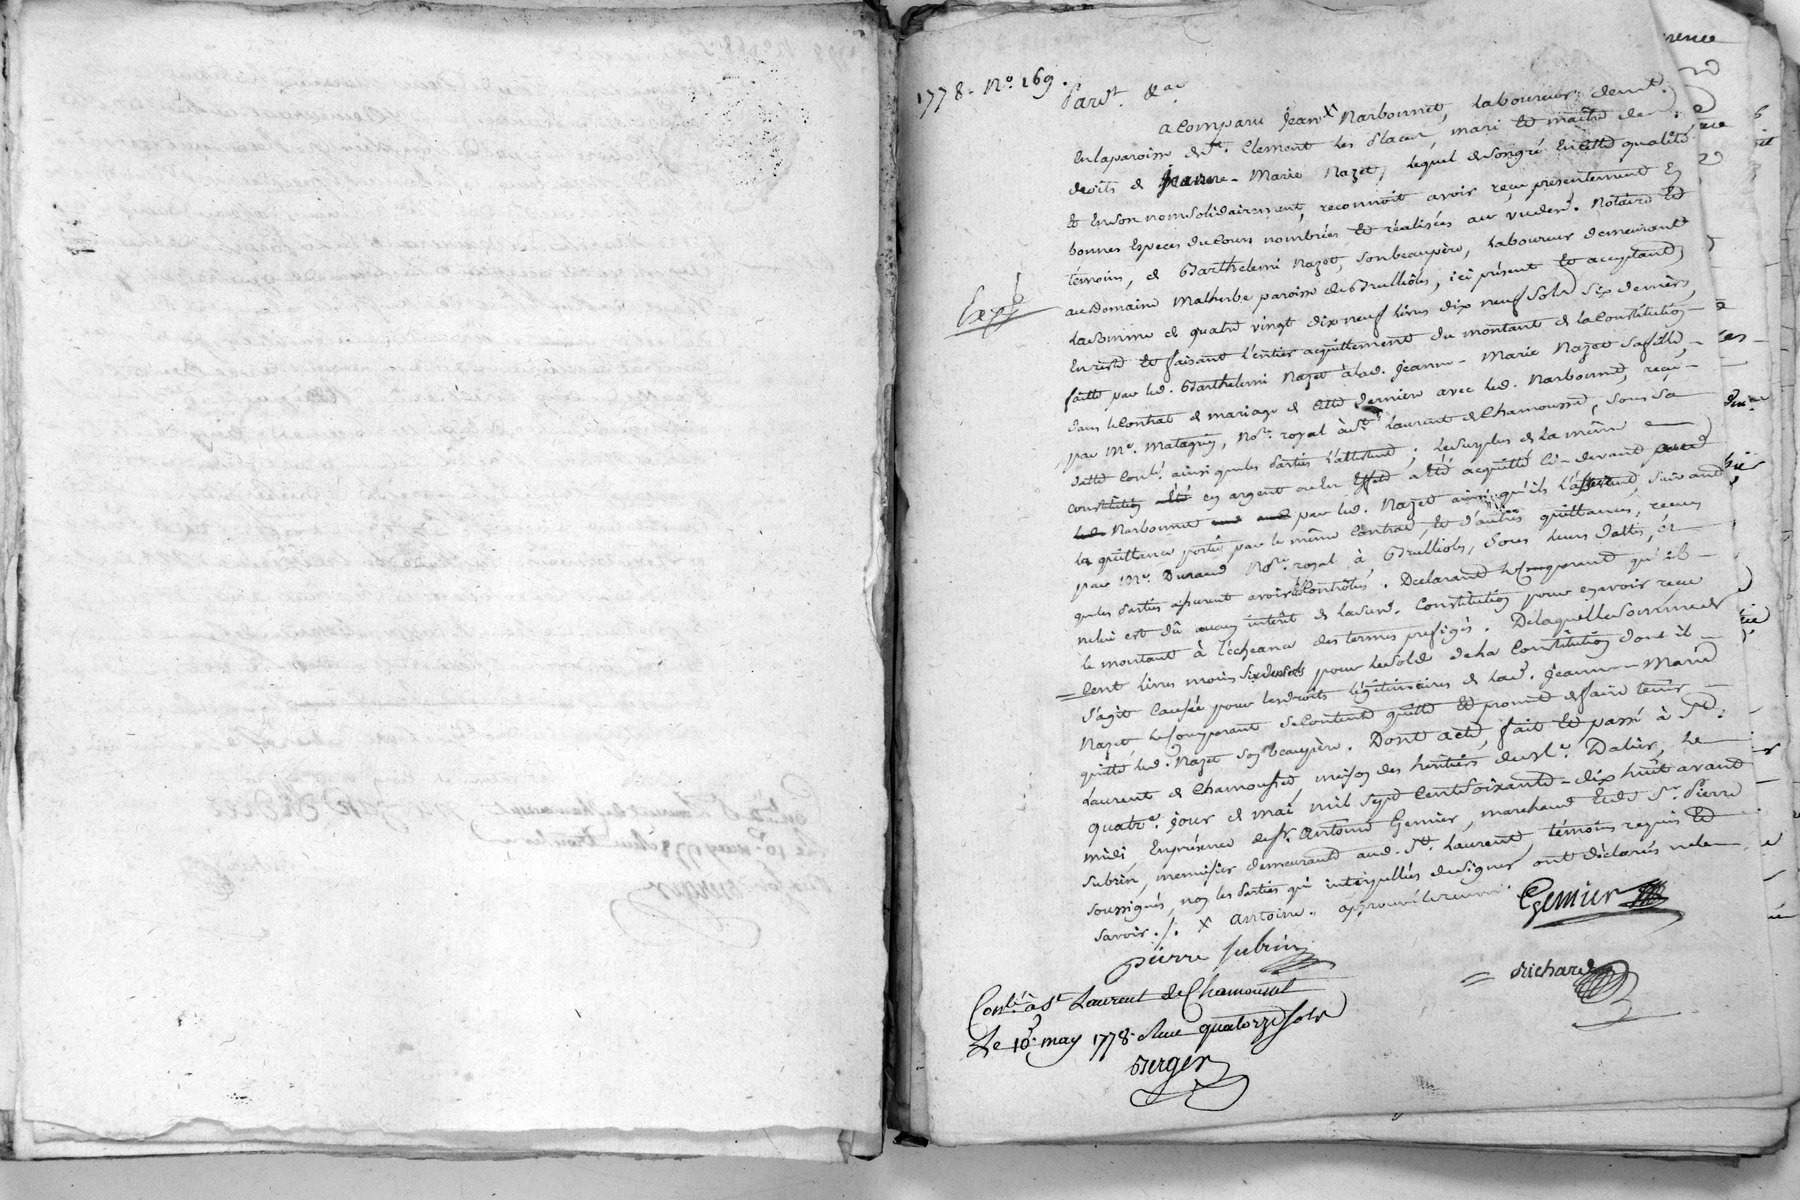 1778. No. 169.
Pardt. &ac
a Comparu Jean X Narbonnet, Laboureur demt.
En la paroisse de St. Clement Les Places, mari et maître des
droits de Jeanne-Marie Nazet, lequel de son gré En cette qualité
Et En son nom solidairement, reconnoit avoir reçu présentement En
bonnes Especes du Cours nombrées et réalisées au vu des d. Notaire et
témoins, de Barthelemi Nazet, son beaupère, Laboureur demeurant
au domaine Malherbe paroisse de Brulliolles, ici présent et acceptant,
Exp
La Somme de quatre vingt dix neuf livres dix neuf Sols Six deniers,
En reste et faisant L'entier acquittement du montant de la Constitution
faitte par led. Barthelemi Nazet à lad. Jeanne-Marie Nazet sa fille,
dans le Contrat de mariage de cette dernière avec led. Narbonnet, reçu
par Me. Matagrin, Nore. royal à St. Laurent de Chamousset, Sous Sa
datte Conlé. ainsi que les Parties L'attestent; Le Surplus de la même
constitution en argent ou En Effets a été acquitté ci-devant
Narbonnet par led. Nazet ainsi qu'ils L'assurent, Suivant
les quittances portées par le même Contrat, et d'autres quittances, recues
par Me. Durand Nore. royal à Brulliolles, Sous leurs dattes, et
que les Parties assurent avoir été Contrôlées. Declarant le Comparant qu'il
ne lui est dû aucun intérêt de la Susd. Constitution pour en avoir reçu
le montant à l'échéance des termes prefigés. De laquelle Somme de
Cent livres moins Six deniers pour le Solde de la Constitution dont il
S'agit Causée pour les droits légitimaires de lad. Jeanne-Marie
Nazet le Comparant Se Contente quitte et promet de faire tenir
quitte led. Nazet son beaupère. Dont acte, fait et passé à St.
Laurent de Chamousset, maison des héritiers du Sr. Dalier, Le
quatre. jour de mai mil Sept Cent Soixante-dix huit avant
midi, En présence de Sr. Antoine Gemier, marchand Et de Sr. Pierre
Subrin, menuisier demeurants aud. St. Laurent, témoins requis et
Soussignés, non les Parties qui interpellées de Signer ont déclarés ne le
Savoir./. X Antoine. approuvé le renvoi.
Gemier
pierre subrin
Richard
Conlé. à St. Laurent de Chamousset
Le 10. may 1778. Recu quatorze Sols
Berger